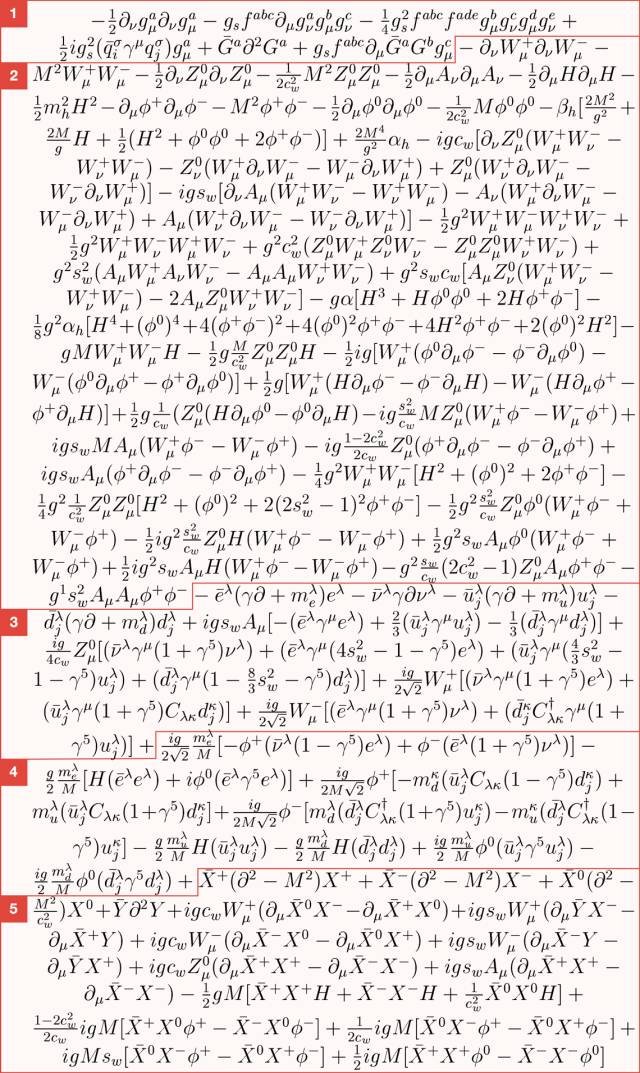 1
−½∂_ν g^a_μ ∂_ν g^a_μ − g_s f^{abc} ∂_μ g^a_ν g^b_μ g^c_ν − ¼g²_s f^{abc} f^{ade} g^b_μ g^c_ν g^d_μ g^e_ν +
½ig²_s (q̄^σ_i γ^μ q^σ_j) g^a_μ + Ḡ^a ∂²G^a + g_s f^{abc} ∂_μ Ḡ^a G^b g^c_μ − ∂_ν W^+_μ ∂_ν W^-_μ −
2
M²W^+_μ W^-_μ − ½∂_ν Z^0_μ ∂_ν Z^0_μ − \frac{1}{2c²_w} M²Z^0_μ Z^0_μ − ½∂_μ A_ν ∂_μ A_ν − ½∂_μ H∂_μ H −
½m²_h H² − ∂_μ φ^+ ∂_μ φ^- − M²φ^+ φ^- − ½∂_μ φ^0 ∂_μ φ^0 − \frac{1}{2c²_w} Mφ^0 φ^0 − β_h[\frac{2M²}{g²} +
\frac{2M}{g} H + ½(H² + φ^0 φ^0 + 2φ^+ φ^-)] + \frac{2M⁴}{g²} α_h − igc_w[∂_ν Z^0_μ (W^+_μ W^-_ν −
W^+_ν W^-_μ) − Z^0_ν (W^+_μ ∂_ν W^-_μ − W^-_μ ∂_ν W^+_μ) + Z^0_μ (W^+_ν ∂_ν W^-_μ −
W^-_ν ∂_ν W^+_μ)] − igs_w[∂_ν A_μ (W^+_μ W^-_ν − W^+_ν W^-_μ) − A_ν (W^+_μ ∂_ν W^-_μ −
W^-_μ ∂_ν W^+_μ) + A_μ (W^+_ν ∂_ν W^-_μ − W^-_ν ∂_ν W^+_μ)] − ½g²W^+_μ W^-_μ W^+_ν W^-_ν +
½g²W^+_μ W^-_ν W^+_μ W^-_ν + g²c²_w (Z^0_μ W^+_μ Z^0_ν W^-_ν − Z^0_μ Z^0_μ W^+_ν W^-_ν) +
g²s²_w (A_μ W^+_μ A_ν W^-_ν − A_μ A_μ W^+_ν W^-_ν) + g²s_w c_w [A_μ Z^0_ν (W^+_μ W^-_ν −
W^+_ν W^-_μ) − 2A_μ Z^0_μ W^+_ν W^-_ν] − gα[H³ + Hφ^0 φ^0 + 2Hφ^+ φ^-] −
⅛g²α_h[H⁴ + (φ^0)⁴ + 4(φ^+ φ^-)² + 4(φ^0)²φ^+ φ^- + 4H²φ^+ φ^- + 2(φ^0)²H²] −
gMW^+_μ W^-_μ H − ½g\frac{M}{c²_w} Z^0_μ Z^0_μ H − ½ig[W^+_μ (φ^0 ∂_μ φ^- − φ^- ∂_μ φ^0) −
W^-_μ (φ^0 ∂_μ φ^+ − φ^+ ∂_μ φ^0)] + ½g[W^+_μ (H∂_μ φ^- − φ^- ∂_μ H) − W^-_μ (H∂_μ φ^+ −
φ^+ ∂_μ H)] + ½g\frac{1}{c_w} (Z^0_μ (H∂_μ φ^0 − φ^0 ∂_μ H) − ig\frac{s²_w}{c_w} MZ^0_μ (W^+_μ φ^- − W^-_μ φ^+) +
igs_w MA_μ (W^+_μ φ^- − W^-_μ φ^+) − ig\frac{1−2c²_w}{2c_w} Z^0_μ (φ^+ ∂_μ φ^- − φ^- ∂_μ φ^+) +
igs_w A_μ (φ^+ ∂_μ φ^- − φ^- ∂_μ φ^+) − ¼g²W^+_μ W^-_μ [H² + (φ^0)² + 2φ^+ φ^-] −
¼g²\frac{1}{c²_w} Z^0_μ Z^0_μ [H² + (φ^0)² + 2(2s²_w − 1)²φ^+ φ^-] − ½g²\frac{s²_w}{c_w} Z^0_μ φ^0 (W^+_μ φ^- +
W^-_μ φ^+) − ½ig²\frac{s²_w}{c_w} Z^0_μ H(W^+_μ φ^- − W^-_μ φ^+) + ½g²s_w A_μ φ^0 (W^+_μ φ^- +
W^-_μ φ^+) + ½ig²s_w A_μ H(W^+_μ φ^- − W^-_μ φ^+) − g²\frac{s_w}{c_w} (2c²_w − 1)Z^0_μ A_μ φ^+ φ^- −
g¹s²_w A_μ A_μ φ^+ φ^- − ē^λ (γ∂ + m^λ_e)e^λ − ν̄^λ γ∂ν^λ − ū^λ_j (γ∂ + m^λ_u)u^λ_j −
3
d̄^λ_j (γ∂ + m^λ_d)d^λ_j + igs_w A_μ [−(ē^λ γ^μ e^λ) + ⅔(ū^λ_j γ^μ u^λ_j) − ⅓(d̄^λ_j γ^μ d^λ_j)] +
\frac{ig}{4c_w} Z^0_μ [(ν̄^λ γ^μ (1 + γ⁵)ν^λ) + (ē^λ γ^μ (4s²_w − 1 − γ⁵)e^λ) + (ū^λ_j γ^μ (\frac{4}{3}s²_w −
1 − γ⁵)u^λ_j) + (d̄^λ_j γ^μ (1 − \frac{8}{3}s²_w − γ⁵)d^λ_j)] + \frac{ig}{2√2} W^+_μ [(ν̄^λ γ^μ (1 + γ⁵)e^λ) +
(ū^λ_j γ^μ (1 + γ⁵)C_{λκ} d^κ_j)] + \frac{ig}{2√2} W^-_μ [(ē^λ γ^μ (1 + γ⁵)ν^λ) + (d̄^κ_j C^†_{λκ} γ^μ (1 +
γ⁵)u^λ_j)] + \frac{ig}{2√2} \frac{m^λ_e}{M} [−φ^+ (ν̄^λ (1 − γ⁵)e^λ) + φ^- (ē^λ (1 + γ⁵)ν^λ)] −
4
\frac{g}{2} \frac{m^λ_e}{M} [H(ē^λ e^λ) + iφ^0 (ē^λ γ⁵e^λ)] + \frac{ig}{2M√2} φ^+ [−m^κ_d (ū^λ_j C_{λκ} (1 − γ⁵)d^κ_j) +
m^λ_u (ū^λ_j C_{λκ} (1 + γ⁵)d^κ_j] + \frac{ig}{2M√2} φ^- [m^λ_d (d̄^λ_j C^†_{λκ} (1 + γ⁵)u^κ_j) − m^κ_u (d̄^λ_j C^†_{λκ} (1 −
γ⁵)u^κ_j] − \frac{g}{2} \frac{m^λ_u}{M} H(ū^λ_j u^λ_j) − \frac{g}{2} \frac{m^λ_d}{M} H(d̄^λ_j d^λ_j) + \frac{ig}{2} \frac{m^λ_u}{M} φ^0 (ū^λ_j γ⁵u^λ_j) −
\frac{ig}{2} \frac{m^λ_d}{M} φ^0 (d̄^λ_j γ⁵d^λ_j) + X̄^+ (∂² − M²)X^+ + X̄^- (∂² − M²)X^- + X̄^0 (∂² −
5
\frac{M²}{c²_w})X^0 + Ȳ∂²Y + igc_w W^+_μ (∂_μ X̄^0 X^- − ∂_μ X̄^+ X^0) + igs_w W^+_μ (∂_μ ȲX^- −
∂_μ X̄^+ Y) + igc_w W^-_μ (∂_μ X̄^- X^0 − ∂_μ X̄^0 X^+) + igs_w W^-_μ (∂_μ X̄^- Y −
∂_μ ȲX^+) + igc_w Z^0_μ (∂_μ X̄^+ X^+ − ∂_μ X̄^- X^-) + igs_w A_μ (∂_μ X̄^+ X^+ −
∂_μ X̄^- X^-) − ½gM[X̄^+ X^+ H + X̄^- X^- H + \frac{1}{c²_w} X̄^0 X^0 H] +
\frac{1−2c²_w}{2c_w} igM[X̄^+ X^0 φ^+ − X̄^- X^0 φ^-] + \frac{1}{2c_w} igM[X̄^0 X^- φ^+ − X̄^0 X^+ φ^-] +
igMs_w [X̄^0 X^- φ^+ − X̄^0 X^+ φ^-] + ½igM[X̄^+ X^+ φ^0 − X̄^- X^- φ^0]